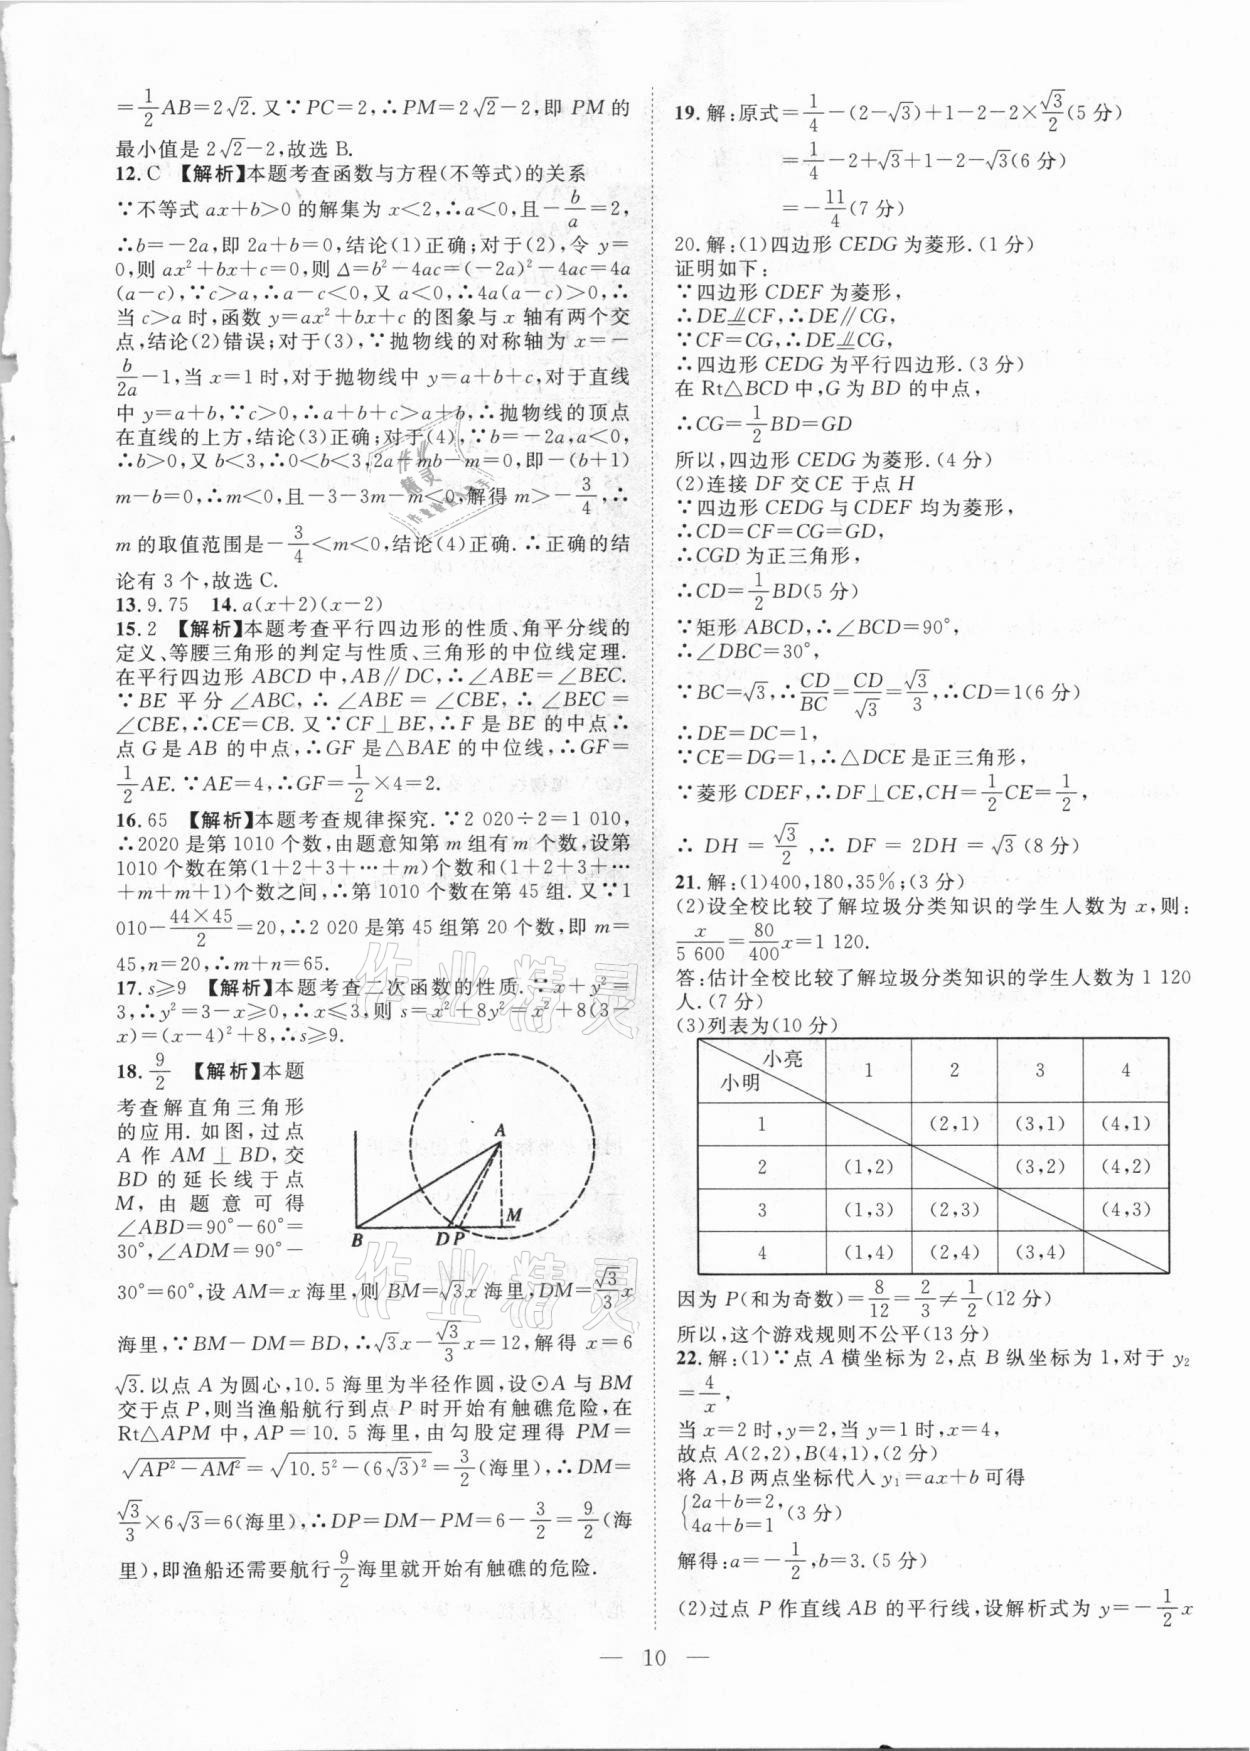 =1/2AB=2√2.又∵PC=2,∴PM=2√2-2,即 PM 的
最小值是 2√2-2,故选 B.
12.C 【解析】本题考查函数与方程(不等式)的关系
∵不等式 ax+b>0 的解集为 x<2,∴a<0,且-b/a=2,
∴b=-2a,即 2a+b=0,结论(1)正确;对于(2),令 y=
0,则 ax²+bx+c=0,则 Δ=b²-4ac=(-2a)²-4ac=4a
(a-c),∵c>a,∴a-c<0,又 a<0,∴4a(a-c)>0,∴
当 c>a 时,函数 y=ax²+bx+c 的图象与 x 轴有两个交
点,结论(2)错误;对于(3),∵抛物线的对称轴为 x=-
b/2a-1,当 x=1 时,对于抛物线中 y=a+b+c,对于直线
中 y=a+b,∵c>0,∴a+b+c>a+b,∴抛物线的顶点
在直线的上方,结论(3)正确;对于(4),∵b=-2a,a<0,
∴b>0,又 b<3,∴0<b<3,2a+mb-m=0,即-(b+1)
m-b=0,∴m<0,且-3-3m-m<0,解得 m>-3/4,∴
m 的取值范围是-3/4<m<0,结论(4)正确.∴正确的结
论有 3 个,故选 C.
13.9.75 14.a(x+2)(x-2)
15.2 【解析】本题考查平行四边形的性质、角平分线的
定义、等腰三角形的判定与性质、三角形的中位线定理.
在平行四边形 ABCD 中,AB∥DC,∴∠ABE=∠BEC.
∵BE 平分∠ABC,∴∠ABE=∠CBE,∴∠BEC
=∠CBE,∴CE=CB.又∵CF⊥BE,∴F 是 BE 的中点∴
点 G 是 AB 的中点,∴GF 是△BAE 的中位线,∴GF=
1/2AE.∵AE=4,∴GF=1/2×4=2.
16.65 【解析】本题考查规律探究.∵2 020÷2=1 010,
∴2020 是第 1010 个数,由题意知第 m 组有 m 个数,设第
1010 个数在第(1+2+3+…+m)个数和(1+2+3+…
+m+m+1)个数之间,∴第 1010 个数在第 45 组.又∵1
010-44×45/2=20,∴2 020 是第 45 组第 20 个数,即 m=
45,n=20,∴m+n=65.
17.s≥9 【解析】本题考查二次函数的性质.∵x+y²=
3,∴y²=3-x≥0,∴x≤3,则 s=x²+8y²=x²+8(3-
x)=(x-4)²+8,∴s≥9.
18.9/2 【解析】本题
考查解直角三角形
的应用.如图,过点
A 作 AM⊥BD,交
BD 的延长线于点
M,由题意可得
∠ABD=90°-60°=
30°,∠ADM=90°-
A
M
B
D P
30°=60°,设 AM=x 海里,则 BM=√3x 海里,DM=√3/3x
海里,∵BM-DM=BD,∴√3x-√3/3x=12,解得 x=6
√3.以点 A 为圆心,10.5 海里为半径作圆,设⊙A 与 BM
交于点 P,则当渔船航行到点 P 时开始有触礁危险,在
Rt△APM 中,AP=10.5 海里,由勾股定理得 PM=
√(AP²-AM²)=√(10.5²-(6√3)²)=3/2(海里),∴DM=
√3/3×6√3=6(海里),∴DP=DM-PM=6-3/2=9/2(海
里),即渔船还需要航行9/2海里就开始有触礁的危险.
19.解:原式=1/4-(2-√3)+1-2-2×√3/2(5 分)
=1/4-2+√3+1-2-√3(6 分)
=-11/4(7 分)
20.解:(1)四边形 CEDG 为菱形.(1 分)
证明如下:
∵四边形 CDEF 为菱形,
∴DE⫫CF,∴DE∥CG,
∵CF=CG,∴DE⫫CG,
∴四边形 CEDG 为平行四边形.(3 分)
在 Rt△BCD 中,G 为 BD 的中点,
∴CG=1/2BD=GD
所以,四边形 CEDG 为菱形.(4 分)
(2)连接 DF 交 CE 于点 H
∵四边形 CEDG 与 CDEF 均为菱形,
∴CD=CF=CG=GD,
∴CGD 为正三角形,
∴CD=1/2BD(5 分)
∵矩形 ABCD,∴∠BCD=90°,
∴∠DBC=30°,
∵BC=√3,∴CD/BC=CD/√3=√3/3,∴CD=1(6 分)
∴DE=DC=1,
∵CE=DG=1,∴△DCE 是正三角形,
∵菱形 CDEF,∴DF⊥CE,CH=1/2CE=1/2,
∴DH=√3/2,∴DF=2DH=√3(8 分)
21.解:(1)400,180,35%;(3 分)
(2)设全校比较了解垃圾分类知识的学生人数为 x,则:
x/5 600=80/400x=1 120.
答:估计全校比较了解垃圾分类知识的学生人数为 1 120
人.(7 分)
(3)列表为(10 分)
小亮 小明 1 2 3 4
1 (2,1) (3,1) (4,1)
2 (1,2) (3,2) (4,2)
3 (1,3) (2,3) (4,3)
4 (1,4) (2,4) (3,4)
因为 P(和为奇数)=8/12=2/3≠1/2(12 分)
所以,这个游戏规则不公平(13 分)
22.解:(1)∵点 A 横坐标为 2,点 B 纵坐标为 1,对于 y₂
=4/x,
当 x=2 时,y=2,当 y=1 时,x=4,
故点 A(2,2),B(4,1),(2 分)
将 A,B 两点坐标代人 y₁=ax+b 可得
{2a+b=2,
4a+b=1 (3 分)
解得:a=-1/2,b=3.(5 分)
(2)过点 P 作直线 AB 的平行线,设解析式为 y=-1/2x
— 10 —
作业精灵
作业精灵